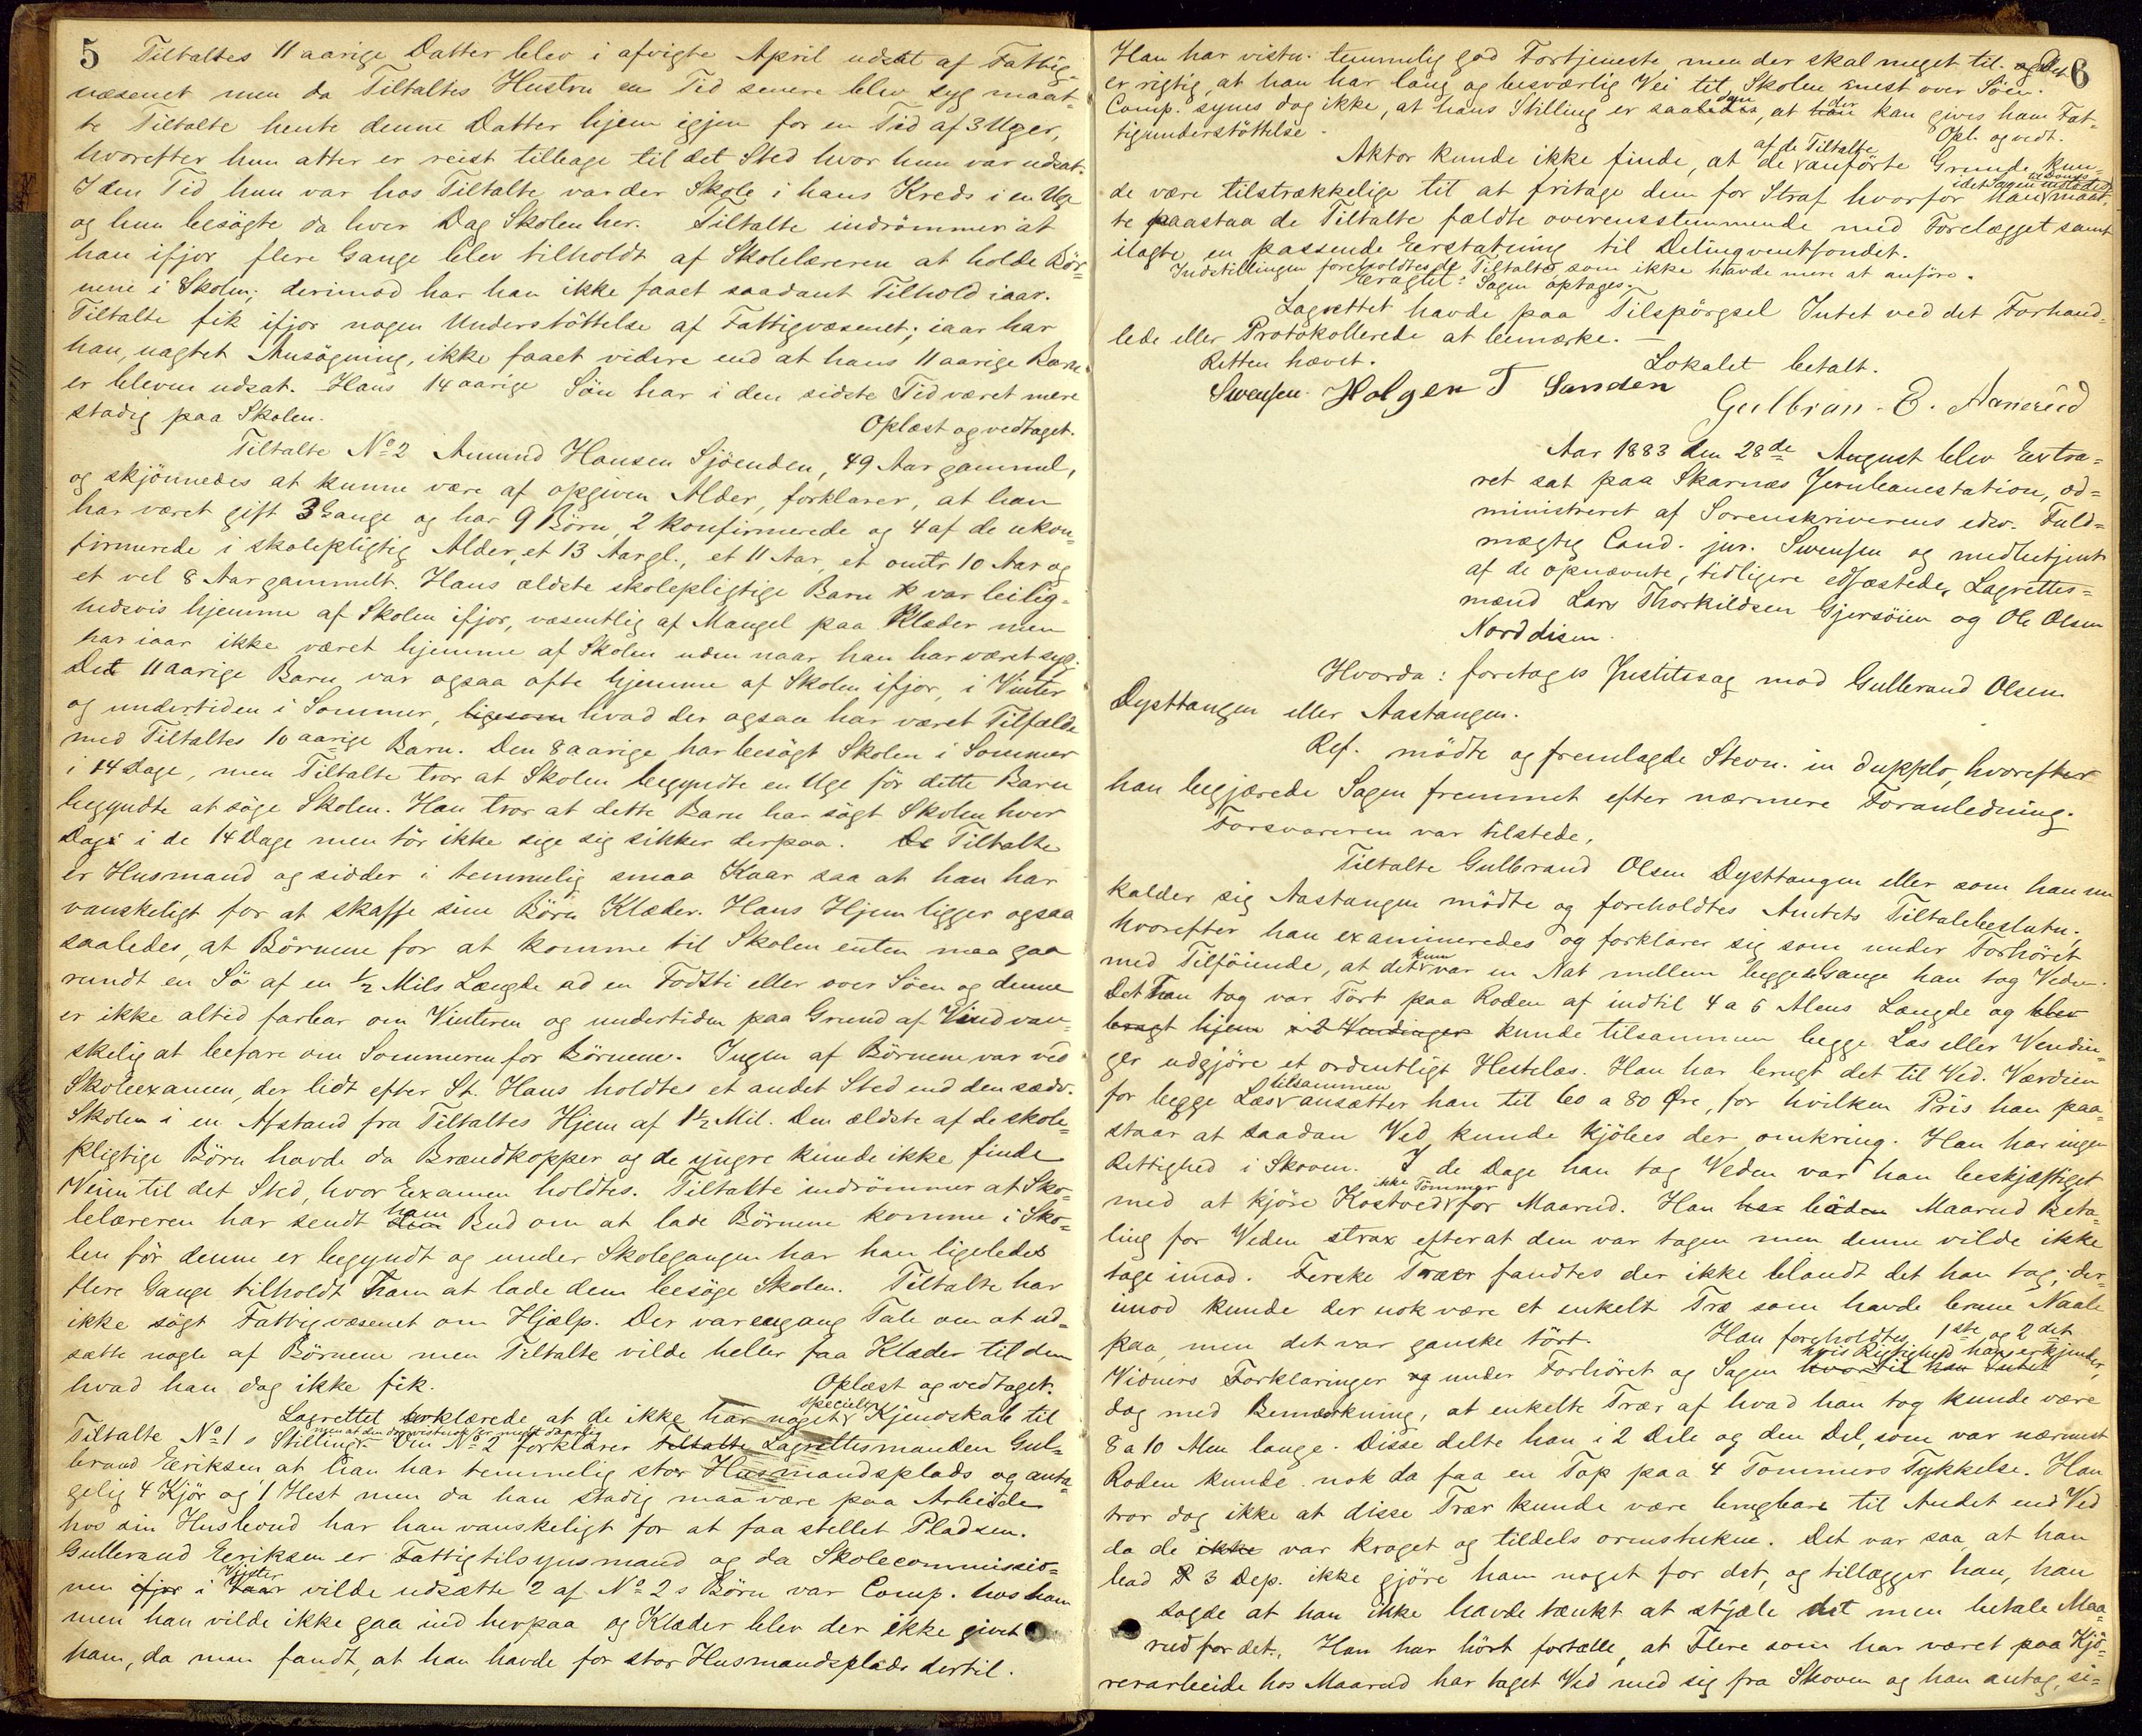 5
Tiltaltes 11 aarige Datter blev i afvigte April udsat af Fattig-
væsenet men da Tiltaltes Hustru en Tid senere blev syg maat-
te Tiltalte hente denne Datter hjem igjen for en Tid af 3 Uger,
hvorefter hun atter er reist tilbage til det Sted hvor hun var udsat.
I den Tid hun var hos Tiltalte var der Skole i hans Kreds i en Uge
og hun besøgte da hver Dag Skolen her. Tiltalte indrömmer at
han ifjor flere Gange blev tilholdt af Skolelæreren at holde Bör-
nene i Skolen; derimod har han ikke faaet saadant Tilhold iaar.
Tiltalte fik ifjor nogen Understöttelse af Fattigvæsenet; iaar har
han, uagtet Ansögning, ikke faaet videre end at hans 11 aarige Barn
er bleven udsat. Hans 14 aarige Sön har i den sidste Tid været mere
stadig paa Skolen.
Oplæst og vedtaget.
Tiltalte No 2 Amund Hansen Sjöenden, 49 Aar gammel,
og skjönnedes at kunne være af opgiven Alder, forklarer, at han
har været gift 3 Gange og har 9 Börn, 2 konfirmerede og 4 af de ukon-
firmerede i skolepligtig Alder, et 13 Aar gl., et 11 Aar, et omtr 10 Aar og
et vel 8 Aar gammelt. Hans ældste skolepligtige Barn var leilig-
hedsvis hjemme af Skolen ifjor, væsentlig af Mangel paa Klæder men
har iaar ikke været hjemme af Skolen uden naar han har været syg.
Det 11 aarige Barn var ogsaa ofte hjemme af Skolen ifjor, i Vinter
og undertiden i Sommer, ligesom hvad der ogsaa har været Tilfælde
med Tiltaltes 10 aarige Barn. Den 8 aarige har besögt Skolen i Sommer
i 14 Dage, men Tiltalte tror at Skolen begyndte en Uge för dette Barn
begyndte at söge Skolen. Han tror at dette Barn har sögt Skolen hver
Dag i de 14 Dage men tör ikke sige sig sikker derpaa. De Tiltalte
er Husmand og sidder i temmelig smaa Kaar saa at han har
vanskeligt for at skaffe sine Börn Klæder. Hans Hjem ligger ogsaa
saaledes, at Börnene for at komme til Skolen enten maa gaa
rundt en Sö af en 1/2 Mils Længde ad en Fodsti eller over Söen og denne
er ikke altid farbar om Vinteren og undertiden paa Grund af Vind van-
skelig at befare om Sommeren for Börnene. Ingen af Börnene var ved
Skoleexamen, der lidt efter St. Hans holdtes et andet Sted end den sædv.
Skolen i en Afstand fra Tiltaltes Hjem af 1 1/2 Mil. Den ældste af de skole-
pligtige Börn havde da Brændkopper og de yngre kunde ikke finde
Veien til det Sted, hvor Examen holdtes. Tiltalte indrömmer at Sko-
lelæreren har sendt ham Bud om at lade Börnene komme i Sko-
len för denne er begyndt og under Skolegangen har han ligeledes
flere Gange tilholdt ham at lade dem besöge Skolen. Tiltalte har
ikke sögt Fattigvæsenet om Hjælp. Der var engang Tale om at ud-
sætte nogle af Börnene men Tiltalte vilde heller faa Klæder til dem
hvad han dog ikke fik.
Oplæst og vedtaget.
specielt
Lagrettet erklærede at de ikke har noget Kjendskab til
men at den dog vistnok er meget daarlig
Tiltalte No 1 s Stilling. Om No 2 forklarer Tiltalte Lagrettesmanden Gul-
brand Eeriksen at han har temmelig stor Husmandsplads og anta-
gelig 4 Kjör og 1 Hest men da han stadig maa være paa Arbeide
hos sin Husbond har han vanskeligt for at faa stellet Pladsen.
Gulbrand Eeriksen er Fattigtilsynsmand og da Skolecommissio-
nen ifjor i Vinter vilde udsætte 2 af No 2 s Börn var Comp. hos ham
men han vilde ikke gaa ind herpaa og Klæder blev der ikke givet
ham, da man fandt, at han havde for stor Husmandsplads dertil.
6
Han har vistn. temmelig god Fortjeneste men der skal meget til. og Det
er rigtig, at han har lang og besværlig Vei til Skolen mest over Söen.
Comp. synes dog ikke, at hans Stilling er saadan, at der kan gives ham Fat-
tigunderstöttelse.
Opl. og vedt.
af de Tiltalte
Aktor kunde ikke finde, at de anförte Grunde kun-
de være tilstrækkelige til at fritage dem for Straf hvorfor han maat-
te paastaa de Tiltalte fældte overensstemmende med Forelægget samt
ilagte en passende Erstatning til Delinqventfondet.
Indstillingen foreholdtes de Tiltalte som ikke havde mere at anföre.
Eragtet: Sagen optages.
Lagrettet havde paa Tilspörgsel Intet ved det Forhand-
lede eller Protokollerede at bemærke. —
Retten hævet.
Lokalet betalt.
Swensen. Holgen T Sanden
Gulbran. E. Nanerud
Aar 1883 den 28de August blev Extra-
ret sat paa Skarnæs Jernbanestation, ad-
ministreret af Sorenskriverens edsv. Fuld-
mægtig Cand. jur. Swensen og medbetjent
af de opnævnte, tidligere edfæstede, Lagrettes-
mænd Lars Thorkildsen Gjersöien og Ole Olsen
Norddisen.
Hvorda: foretages Justitssag mod Gulbrand Olsen
Dysttangen eller Aastangen.
Ref. mödte og fremlagde Stevn. in dupplo, hvorefter
han begjærede Sagen fremmet efter nærmere Foranledning.
Forsvareren var tilstede.
Tiltalte Gulbrand Olsen Dysttangen eller som han nu
kalder sig Aastangen mödte og foreholdtes Amtets Tiltalebeslutn.,
hvorefter han examineredes og forklarer sig som under Forhöret
med Tilföiende, at det kun var en Nat mellem begge Gange han tog Veden.
Det han tog var Tört paa Roden af indtil 4 a 5 Alens Længde og blev
bragt hjem i 2 Vendinger kunde tilsammen begge Læs eller Vendin-
ger udgjöre et ordentligt Hestelæs. Han har brugt det til Ved. Værdien
tilsammen
for begge Læs ansætter han til 60 a 80 Øre, for hvilken Pris han paa-
staar at saadan Ved kunde kjöbes der omkring. Han har ingen
Rettighed i Skoven. I de Dage han tog Veden var han beskjæftiget
ikke Tömmer
med at kjöre Kastved for Maarud. Han har böden Maarud Beta-
ling for Veden strax efterat den var tagen men denne vilde ikke
tage imod. Ferske Trær fandtes der ikke blandt det han tog; der-
imod kunde der nok være et enkelt Træ som havde brune Naale
paa, men det var ganske tört. Han foreholdtes 1ste og 2det
hvis Rigtighed han erkjender,
Vidners Forklaringer og under Forhöret og Sagen hvortil han Intet
dog med Bemærkning, at enkelte Trær af hvad han tog kunde være
8 a 10 Alen lange. Disse delte han i 2 Dele og den Del, som var nærmest
Roden kunde nok da faa en Top paa 4 Tommers Tykkelse. Han
tror dog ikke at disse Trær kunde være brugbare til Andet end Ved
da de ikke var kraget og tildels ormstukne. Det var saa, at han
bad 3 Dep. ikke gjöre ham noget for det, og tillægger han, han
sagde at han ikke havde tænkt at stjæle det men betale Maa-
rud for det. Han har hört fortælle, at Flere som har været paa Kjö-
rerarbeide hos Maarud har taget Ved med sig fra Skoven og han antog, si-